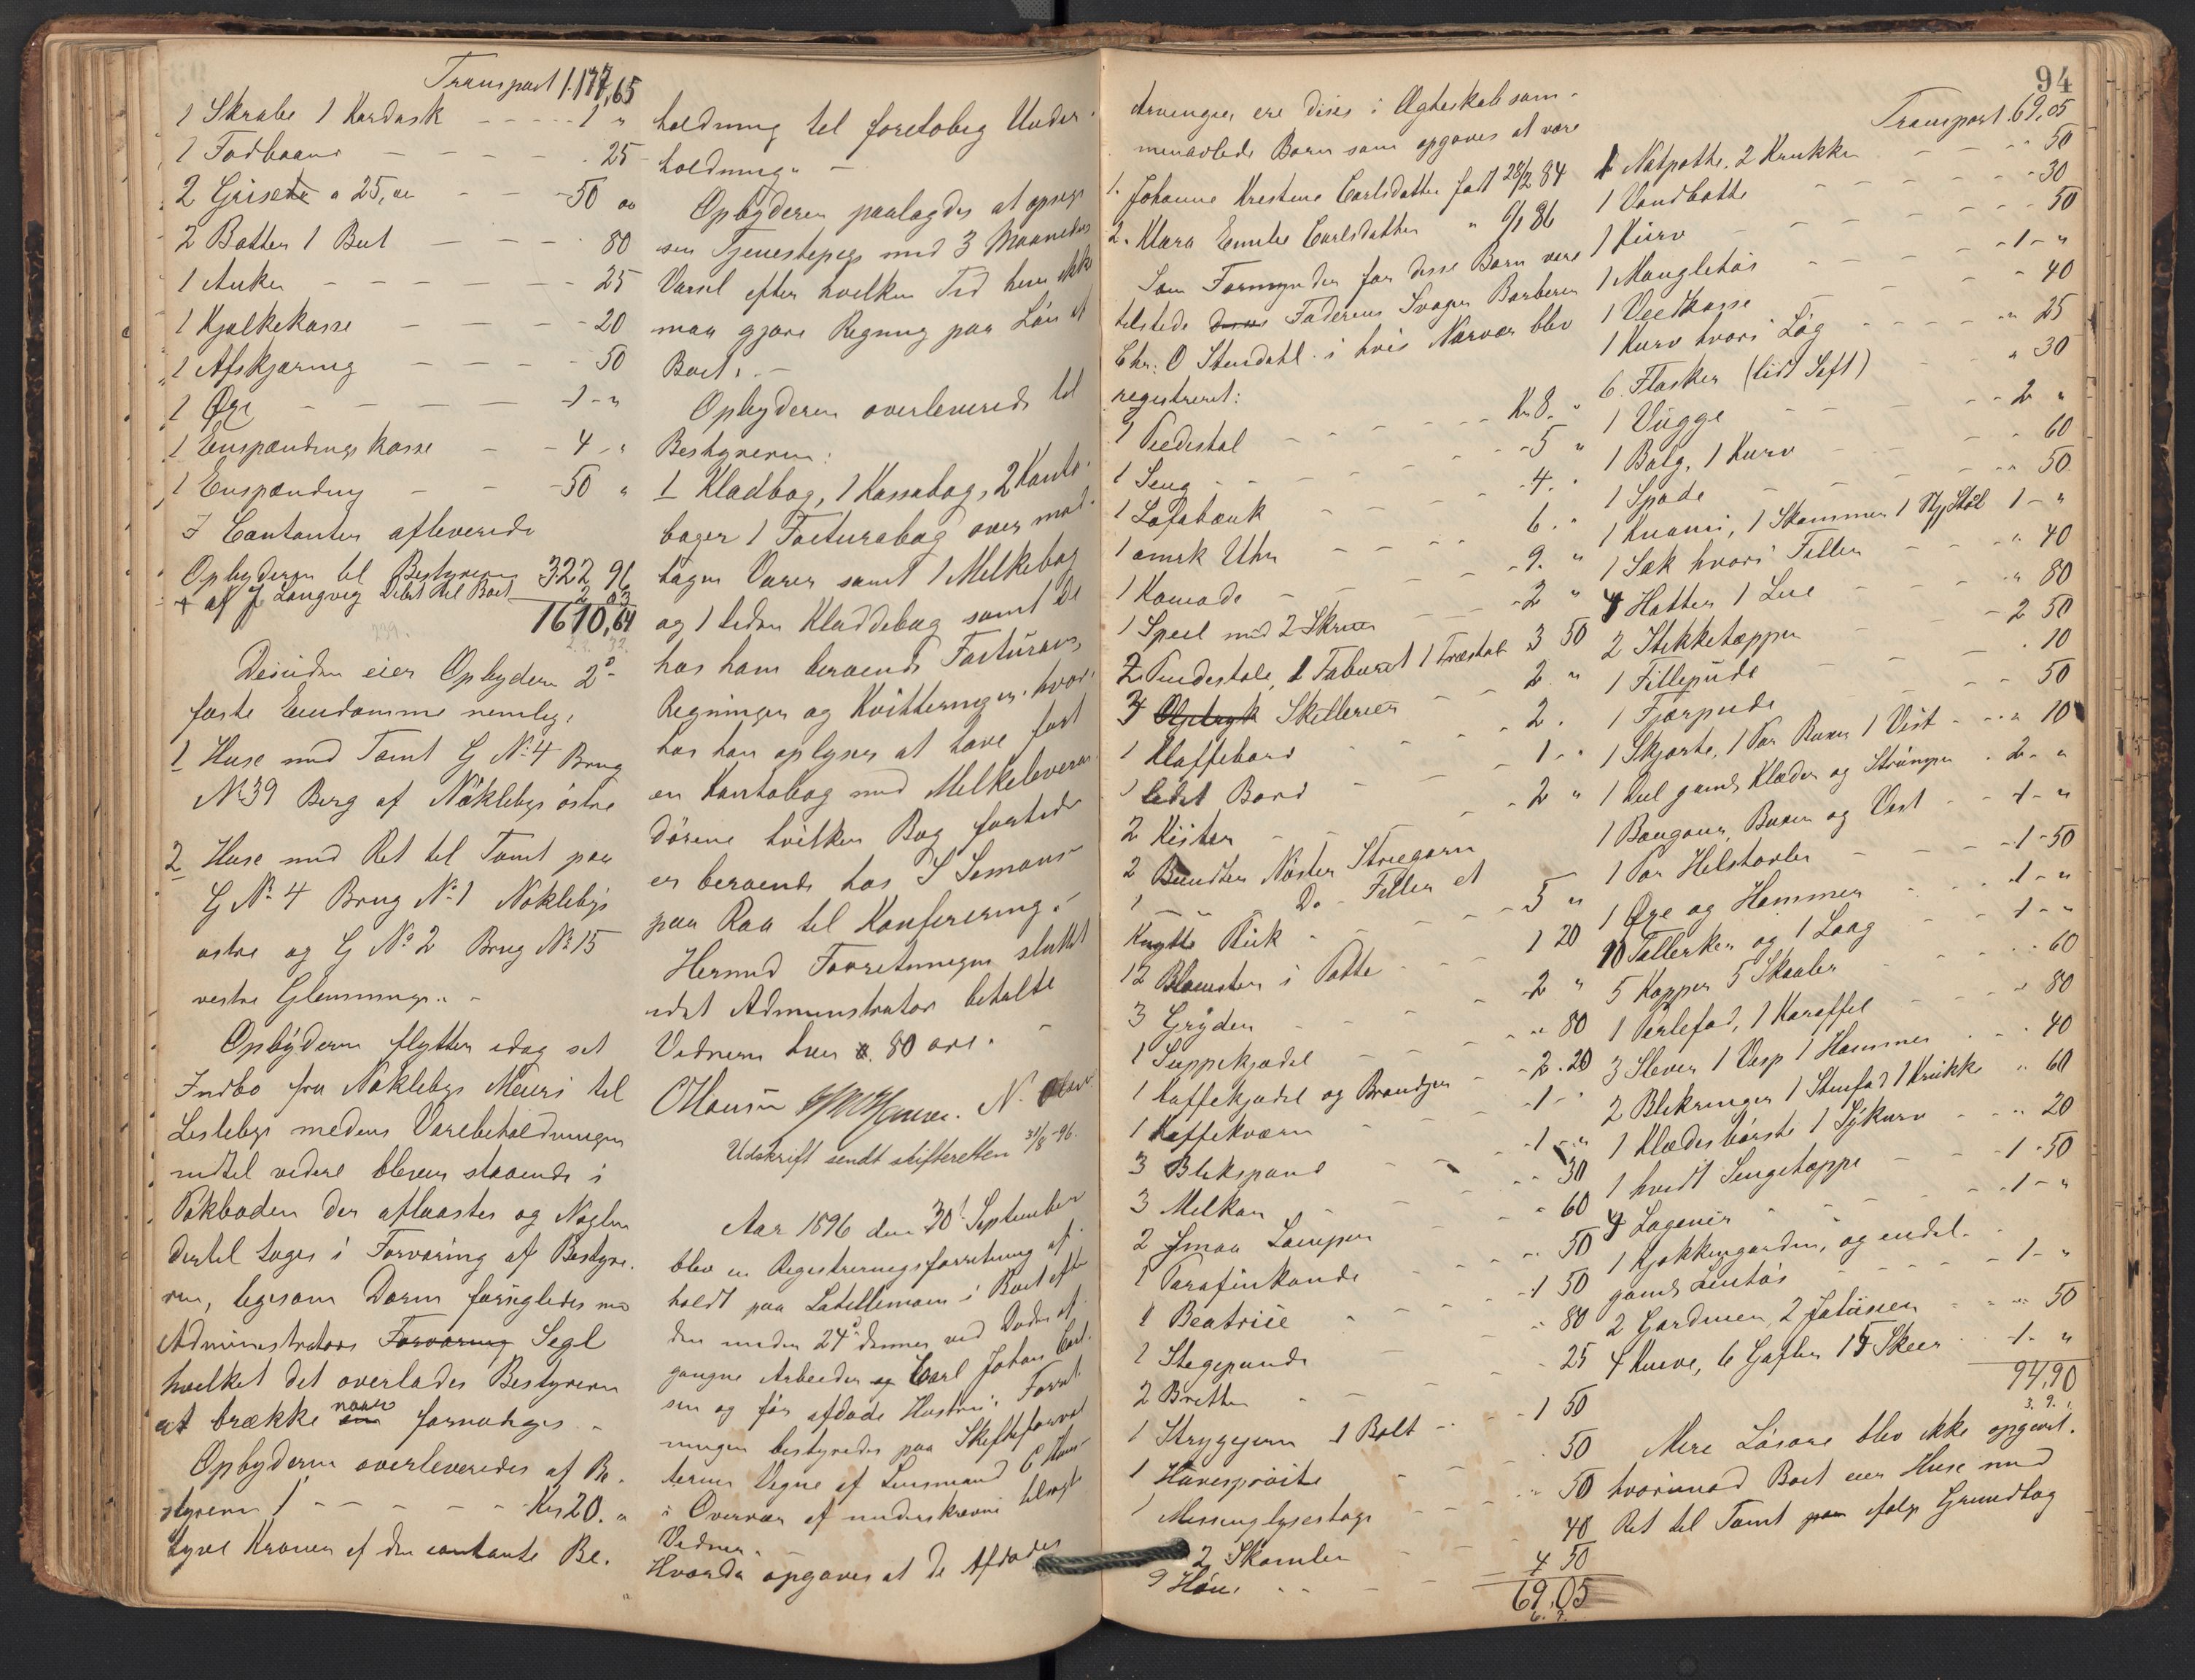 Transport 1.177,65
1 Skrabe 1 Kardask - - - - - 1 "
1 Fodbaand - - - - - 25
2 Grisete a 25, øre - - - 50 øre
2 Bøtter 1 Bet - - - 80
1 Anker - - - - - 25
1 Kjælkekasse - - - - 20
1 Afskjæring - - - - 50
1 Øxe - - - - - 1 - "
1 Enspændingskasse - - 4 - "
1 Enspænding - - - 50 "
I Contanter afleverede
Opbyderen til Bestyreren 322 96
+ af J. Langvig Debt til Boet 2 03
1610,64
Desuden eier Opbyderen 2de
faste Eiendomme nemlig:
1 Huse med Tomt G No 4 Brug
No 39 Berg af Nøkleby østre
2 Huse med Ret til Tomt paa
G No 4 Brug No 1 Nøkleby
østre og G No 2 Brug No 15
vestre Glemminge. -
Opbyderen flytter idag sit
Indbo fra Nøkleby Meieri til
Lisleby medens Varebeholdningen
indtil videre bleven staaende i
Pakboden der aflaastes og Nøglen
dertil toges i Forvaring af Bestyre-
ren, ligesom Døren forsegledes med
Administrators Forvaring Segl
hvilket det overlades Bestyreren
at brække naar fornødiges. -
Opbyderen overleveredes af Be-
styreren / - - - - - Kr 20. "
tyve Kroner af den contante Be-
holdning til foreløbig Under-
holdning. -
Opbyderen paalagdes at opsige
sin Tjenestepige med 3 Maaneders
Varsel efter hvilken Tid hun ikke
maa gjøre Regning paa Løn af
Boet. -
Opbyderen overleverede til
Bestyreren:
1 Kladbog, 1 Kassabog, 2 Konto-
bøger 1 Facturabog over mod-
tagne Varer samt 1 Melkebog
og 1 liden Kladdebog samt de
hos ham beroende Facturaer,
Regninger og Kvitteringer. hvor-
hos han oplyser at have ført
en Kontobog med Melkeleveran-
dørene hvilken Bog fortiden
er beroende hos S Simons-
paa Raa til Konferering. -
Hermed Forretningen sluttet
idet Administrator betalte
Vidnerne hver 80 øre. -
O Hansen N. Olsen
Udskrift sendt skifteretten 31/8 - 96.
Aar 1896 den 30te September
blev en Registreringsforretning af-
holdt paa Labellemoen i Boet efter
den under 24de dennes ved Døden af-
gangne Arbeider Carl Johan Carl-
sen og før afdøde Hustru. Forret-
ningen bestyredes paa Skifteforval-
terens Vegne af Lensmand C Han-
i Overvær af underskrevne tilsagte
Vidner. -
Hvorda opgaves at de Afdødes
94
Arvinger ere disses i Ægteskab sam-
menavlede Børn som opgaves at være
1. Johanne Kristine Carlsdatter født 28/2 84
2. Klara Emilie Carlsdatter " 9/1 86
Som Formynder for disse Børn var
tilstede Faderens Svoger Barberer
Chr: O Stendahl i hvis Nærvær blev
registreret:
1 Piedestal - - - - - Kr 8. "
1 Seng - - - - - 5 "
1 Sofabænk - - - - 4. "
1 amrk Uhr - - - - 6. "
1 Komode - - - - - 9. "
1 Speil med 2 Skruer - - - 2 "
2 Pindestole, 1 Taburet 1 Træstol 3 50
3 Olietryk Skillerier - - 2. "
1 Klaffebord - - - - 2.
1 lidet Bord - - - 1 - "
2 Kister - - - - 2 "
2 Bundter Nøster Striegarn
1 - " - Do - Filler et
Knytte Strik - - - - 5 "
12 Blomster i Potte - - - 1 20
3 Gryder - - - - 2 "
1 Suppekjedel - - - " 80
1 Kaffekjedel og Brandjern - - 2.20
1 Kaffekværn - - - 1 - "
3 Blikspand - - - 1 - "
3 Melkan - - - - 30
2 smaa Lamper - - - " 60
1 Parafinkande - - - " 50
1 Beatrice - - - - 1 50
1 Stegepande - - - " 80
2 Bretter - - - - 25
1 Strygejern 1 Bolt - - - 1 50
1 Havesprøite - - - 50
1 Messinglysestage - - - 50
2 Skamler - - - 40
9 Høns - - - 4 50
69,05
Transport. 69,05
1 Natpotte, 2 Krukker - - - 50
1 Vandbøtte - - - - 30
1 Kurv - - - - - 50
1 Mangletøi - - - - 1 - "
1 Vedkasse - - - - 40
1 Kurv hvori Løg - - - " 25
6 Flasker (lidt Saft) - - " 30
1 Vugge - - - - 2 "
1 Balg, 1 Kurv - - - 60
1 Spade - - - - " 50
1 Knani, 1 Skammel 1 Stol 1 - "
1 Sæk hvori Filler - - - " 40
4 Hatter 1 Lue - - - " 80
2 Stikketæpper - - - 2 50
1 Fillepude - - - - 10
1 Fjærpude - - - - 50
1 Skjorte, 1 Par Buxer 1 Vest - - " 10
1 Del gamle Klæder og Strømper - 2 - "
1 Bongour, Buxer og Vest - - 1 - "
1 Par Helstøvler - - - 1 - 50
1 Øxe og Hammer - - - 1 - "
10 Tallerker og 1 Laag - - 1 - "
5 Kopper 5 Skaaler - - - 60
1 Perlefad, 1 Karaffel - - - " 80
3 Slever 1 Visp 1 Hammer - - 40
2 Blikringer 1 Stenfad 1 Krukke " 60
1 Klædesbørste 1 Sykurv - - " 20
1 hvidt Sengetæppe - - - 1 - 50
4 Lagener - - - - 1 - "
1 Kjøkkengardin, og endel.
gamle Lintøi - - - - 1 - "
2 Gardiner, 2 Jalusier - - " 50
4 Knive, 6 Gafler 15 Skeer - - 1 - "
94,90
Mere Løsøre blev ikke opgivet.
hvorimod Boet eier Huse med
Ret til Tomt ifølge Grundtag